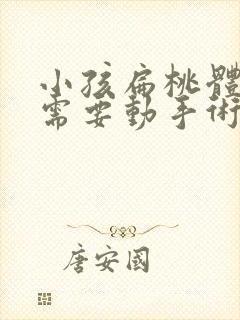 小孩扁桃體
需要動手術
唐安國